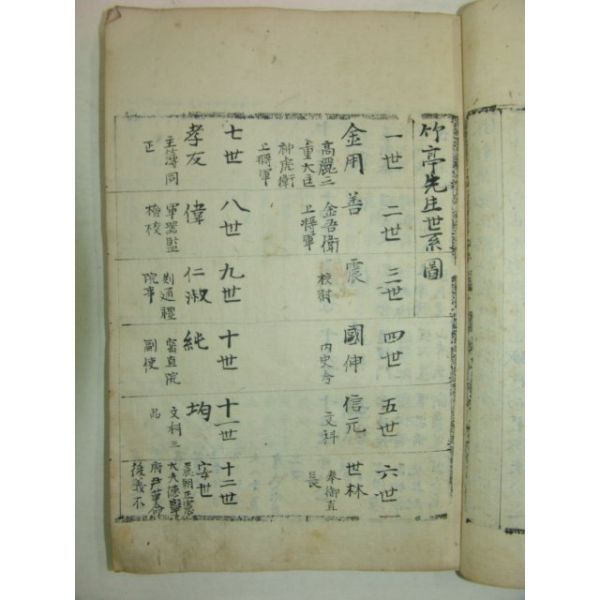 竹亭先生世系圖
一世 二世 三世 四世 五世 六世
金用 善 震 國伸 信元 世林
高麗三
重大匡
神虎衛
上將軍
金吾衛
上將軍
校尉
內史令
文科
奉御直
長
七世 八世 九世 十世 十一世 十二世
孝友 偉 仁淑 純 均 安世
主簿同
正
軍器監
檢校
則通禮
院事
密直院
副使
文科三
品
麗朝正憲
府尹革命
後義不